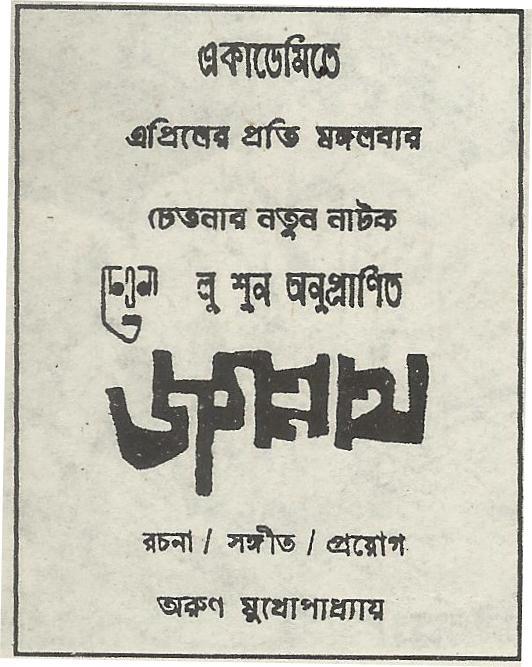 একাডেমিতে
এপ্রিলের প্রতি মঙ্গলবার
চেতনার নতুন নাটক
চেতনা লু শুন অনুপ্রাণিত
জগন্নাথ
রচনা / সঙ্গীত / প্রয়োগ
অরুণ মুখোপাধ্যায়